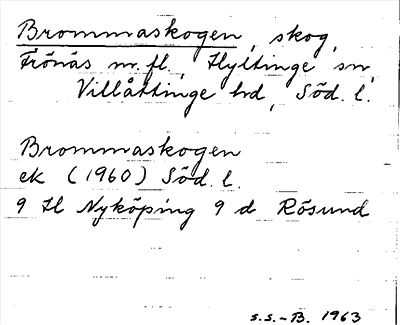 Brommaskogen, skog,
Frönäs m.fl., Hyltinge sn,
Villåttinge hd, Söd. l.
Brommaskogen
ek (1960) Söd. l.
9 H Nyköping 9 d Rösund
s.s.-B. 1963